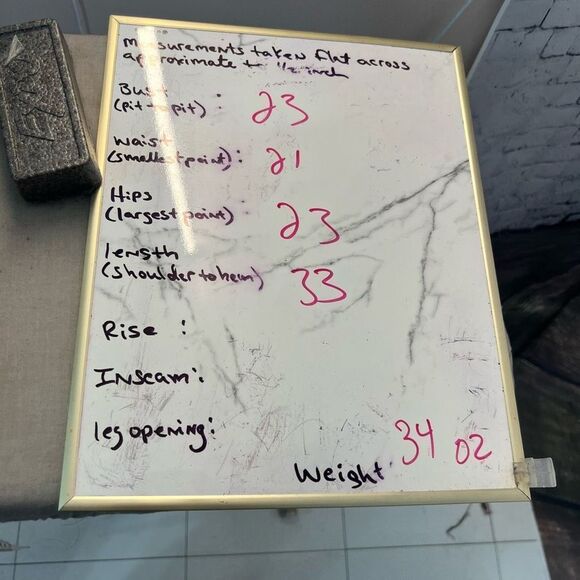 measurements taken flat across
approximate +- 1/2 inch
Bust
(pit to pit) : 23
waist
(smallest point) : 21
Hips
(largest point) 23
length
(shoulder to hem) 33
Rise :
Inseam :
leg opening :
Weight 34 oz